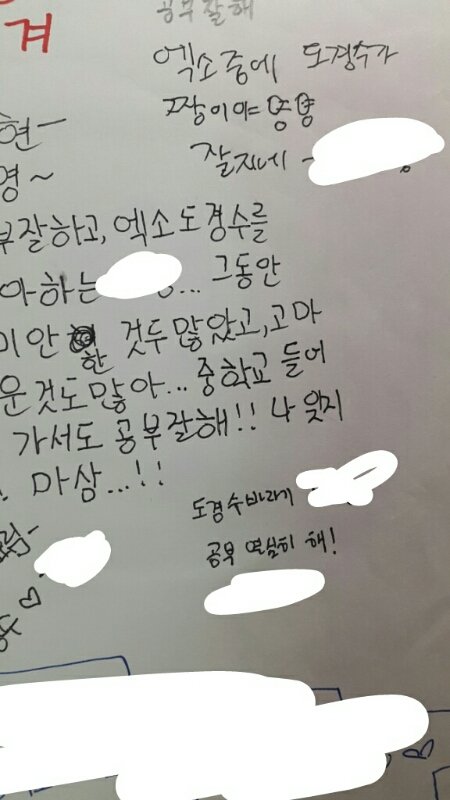 공부잘해
계
엑소중에 도경수가
짱이야
잘지내
현ㅡ
영~
부잘하고, 엑소도경수를
아하는 ... 그동안
미안한 것두많았고, 고마
운것도많아... 중학교 들어
가서도 공부잘해!! 나 잊지
마삼...!!
도경수바라기
공부 열심히 해!